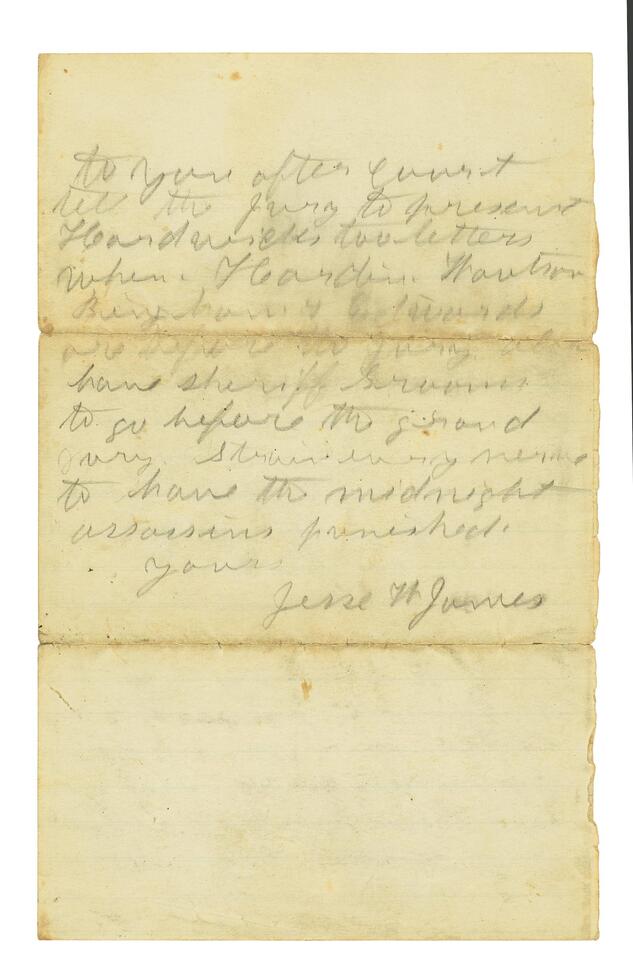 to you after Court
tell the Jury to present
Hardwicks two letters
when Hardin
Bingham & Edwards
are before the Jury also
have sheriff Grooms
to go before the grand
Jury. Strain every nerve
to have the midnight
assassins punished.
yours
Jesse W James